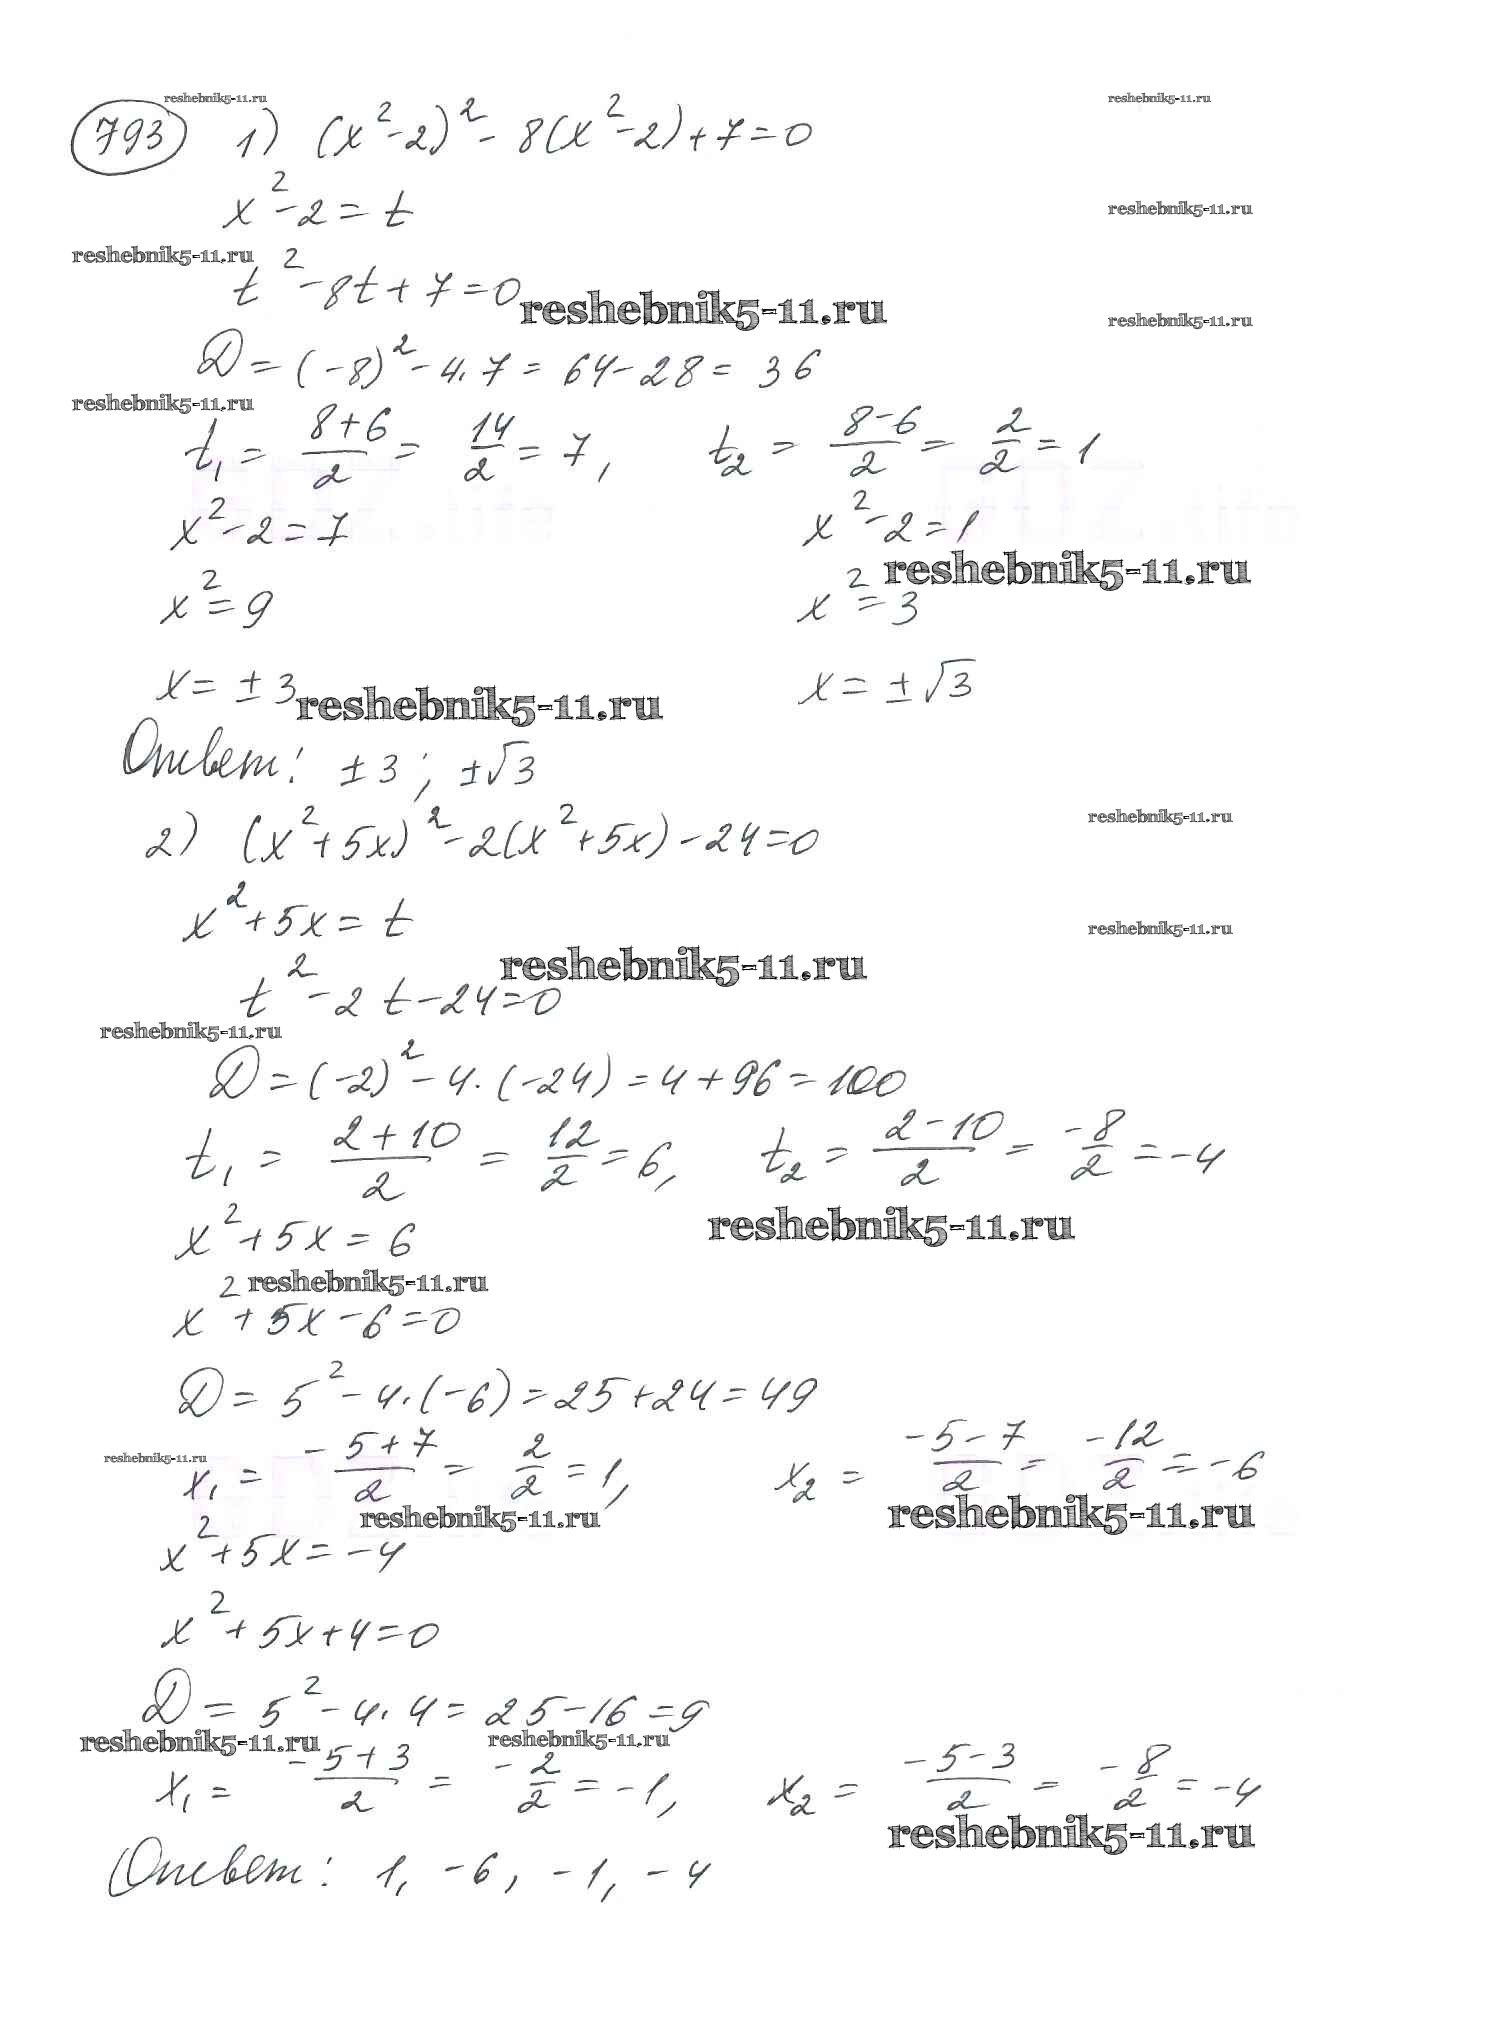 reshebnik5-11.ru reshebnik5-11.ru
793 1) (x²-2)² - 8(x²-2) + 7 = 0
x² - 2 = t
reshebnik5-11.ru
reshebnik5-11.ru
t² - 8t + 7 = 0
reshebnik5-11.ru
reshebnik5-11.ru
D = (-8)² - 4·7 = 64 - 28 = 36
reshebnik5-11.ru
t₁ = (8+6)/2 = 14/2 = 7, t₂ = (8-6)/2 = 2/2 = 1
x² - 2 = 7 x² - 2 = 1
reshebnik5-11.ru
x² = 9 x² = 3
x = ±3 x = ±√3
reshebnik5-11.ru
Ответ: ±3; ±√3
2) (x²+5x)² - 2(x²+5x) - 24 = 0
reshebnik5-11.ru
x² + 5x = t
reshebnik5-11.ru
reshebnik5-11.ru
t² - 2t - 24 = 0
reshebnik5-11.ru
D = (-2)² - 4·(-24) = 4 + 96 = 100
t₁ = (2+10)/2 = 12/2 = 6, t₂ = (2-10)/2 = -8/2 = -4
x² + 5x = 6
reshebnik5-11.ru
reshebnik5-11.ru
x² + 5x - 6 = 0
D = 5² - 4·(-6) = 25 + 24 = 49
reshebnik5-11.ru
x₁ = (-5+7)/2 = 2/2 = 1, x₂ = (-5-7)/2 = -12/2 = -6
reshebnik5-11.ru reshebnik5-11.ru
x² + 5x = -4
x² + 5x + 4 = 0
D = 5² - 4·4 = 25 - 16 = 9
reshebnik5-11.ru reshebnik5-11.ru
x₁ = (-5+3)/2 = -2/2 = -1, x₂ = (-5-3)/2 = -8/2 = -4
reshebnik5-11.ru
Ответ: 1, -6, -1, -4